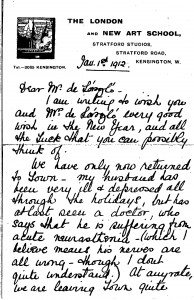 THE LONDON
AND NEW ART SCHOOL,
STRATFORD STUDIOS,
STRATFORD ROAD,
KENSINGTON, W.
Tel.—3005 KENSINGTON.
Jan. 1st 1912.
Dear Mr. de László—
I am writing to wish you
and Mrs. de László every good
wish in the New Year, and all
the luck that you can possibly
think of.
We have only now returned
to town— my husband has
been very ill & depressed all
through the holidays, but has
at last seen a doctor, who
says that he is suffering from
acute neurasthenia— (which I
believe means his nerves are
all wrong— though I don't
quite understand.) At any rate,
we are leaving Town quite